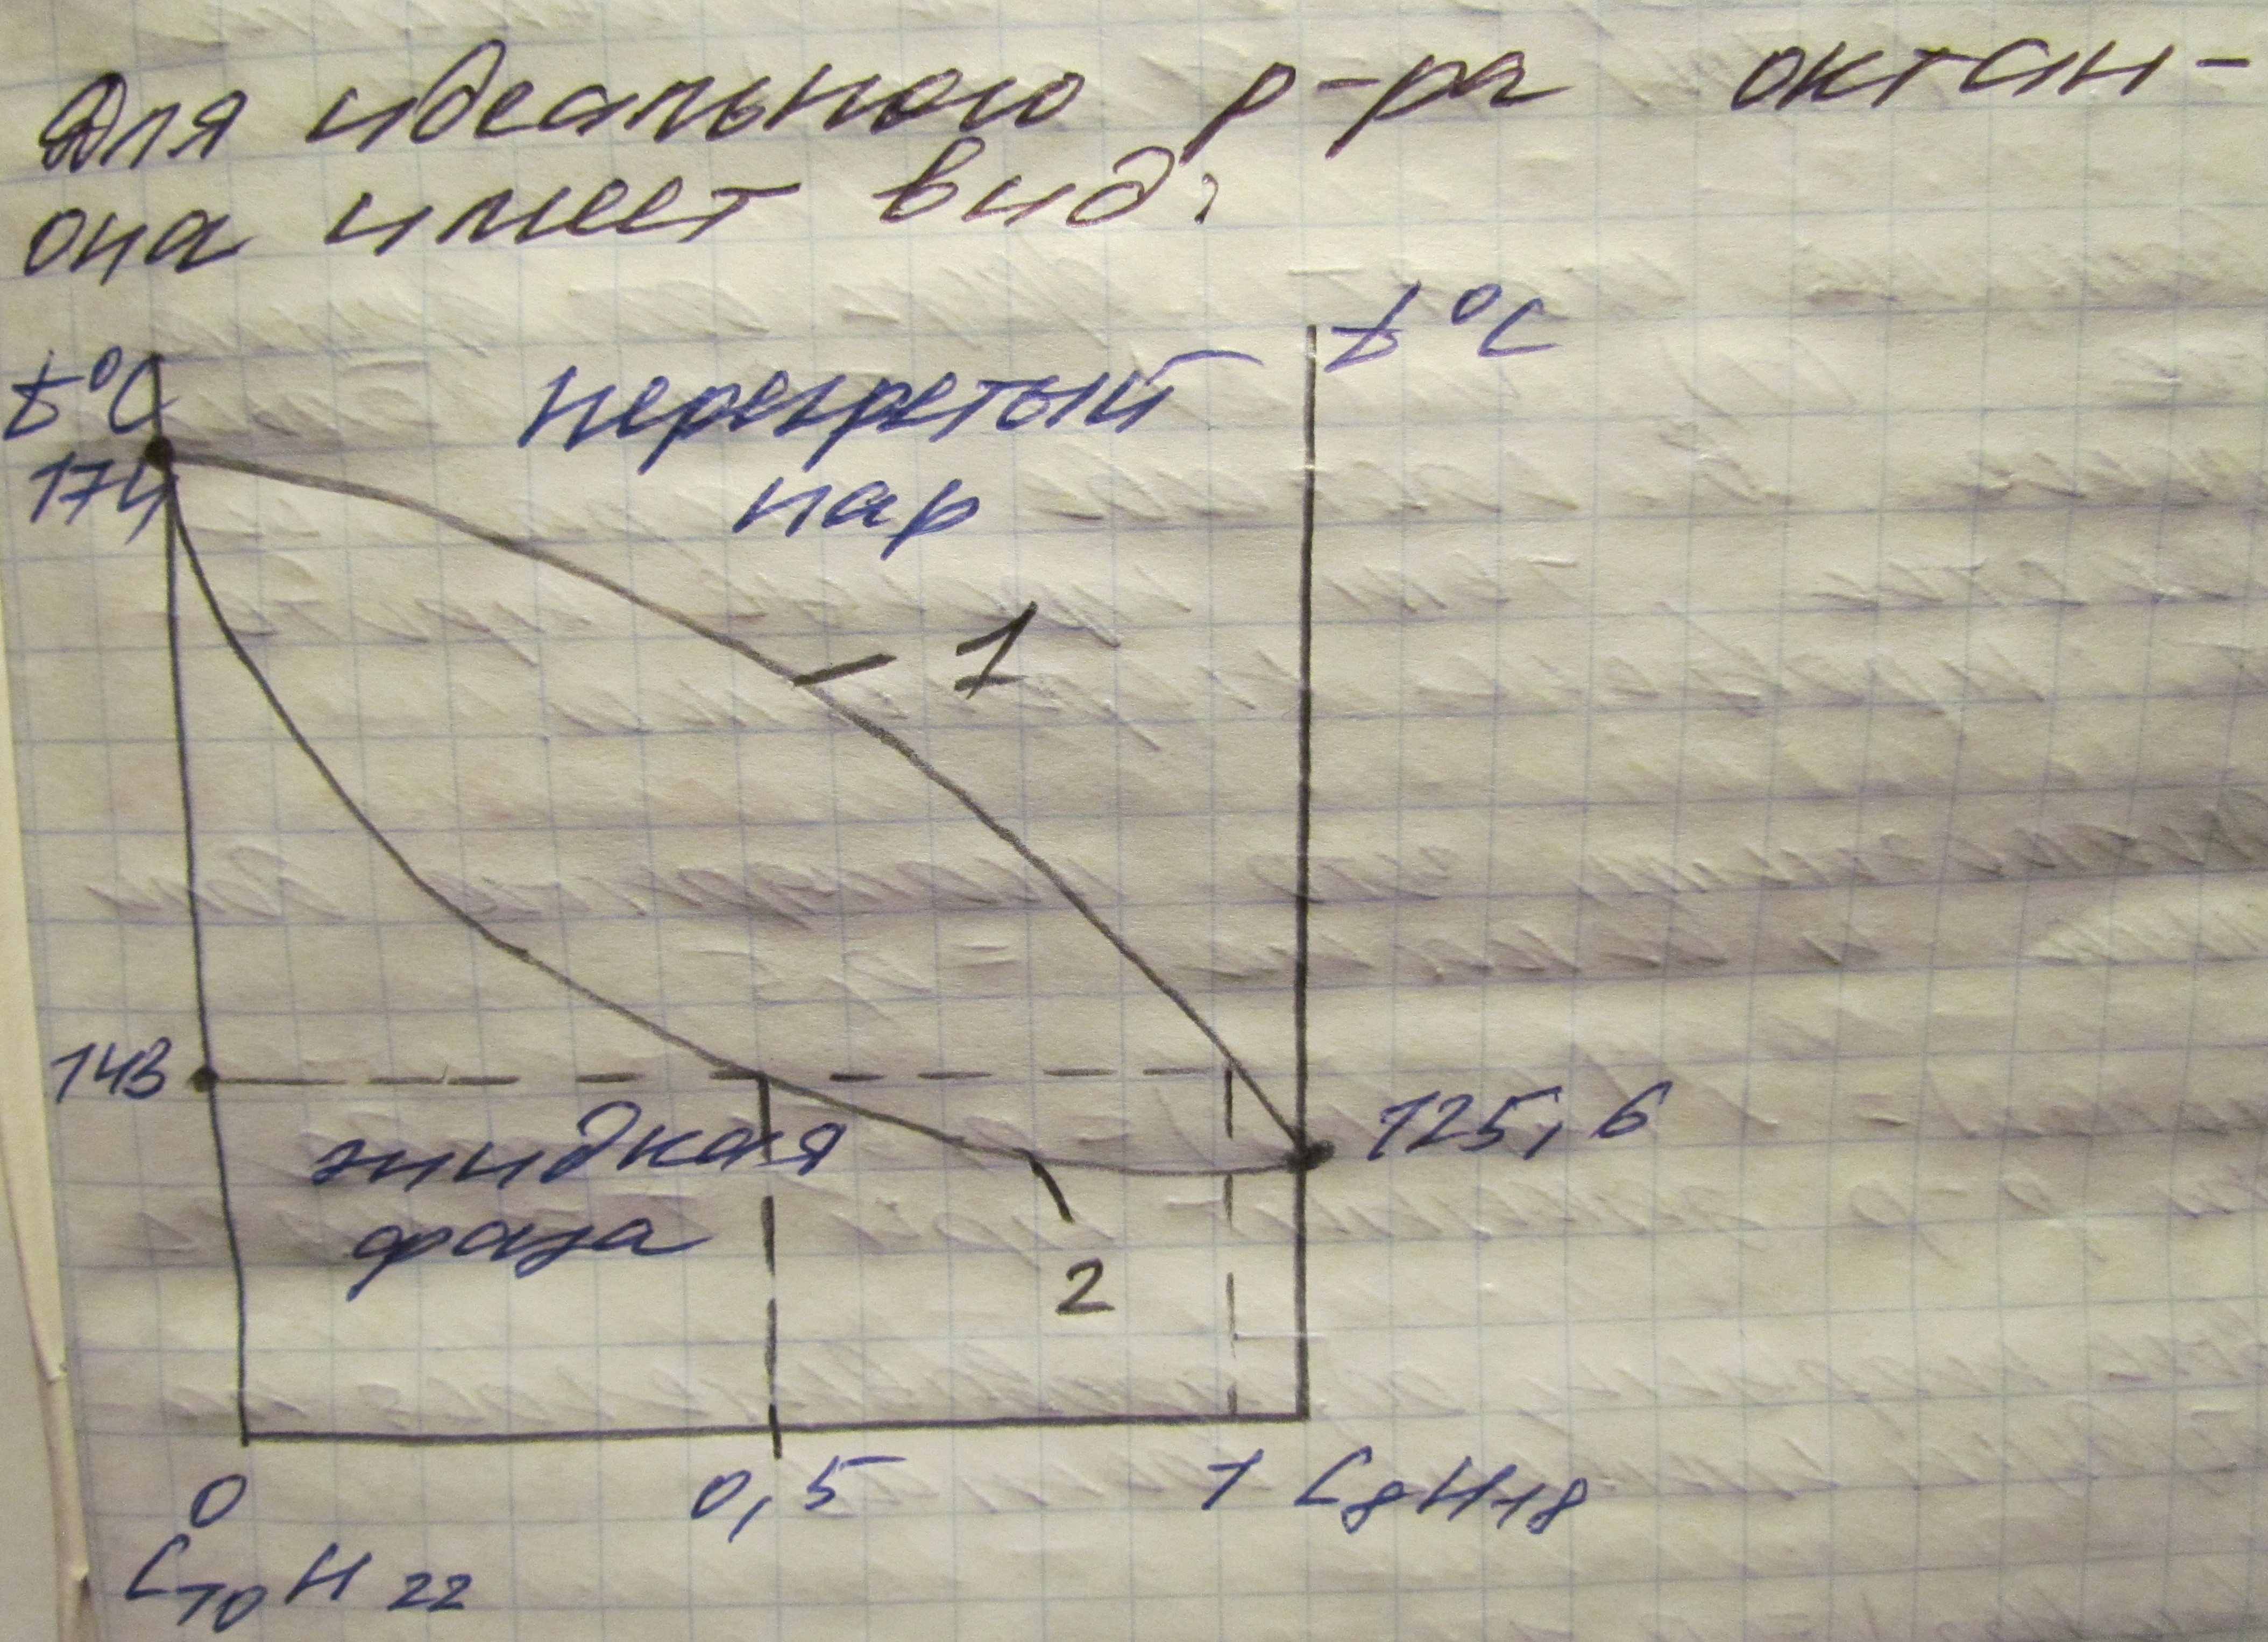 Для идеального р-ра октан-
она имеет вид:
t°C
t°C
перегретый
пар
174
1
143
125,6
жидкая
фаза
2
0
0,5
1 C8H18
C10H22